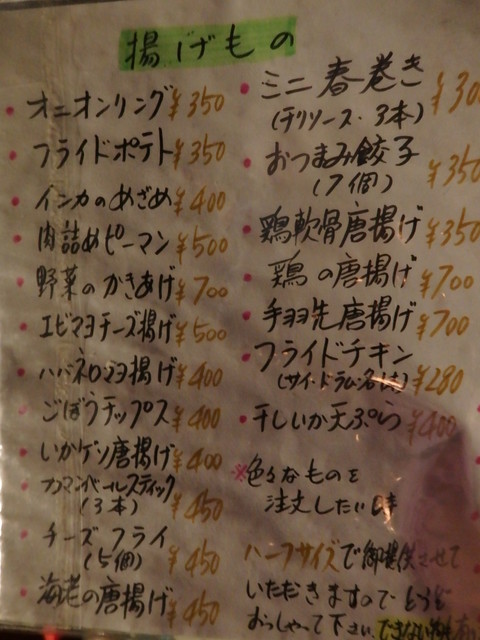 揚げもの
オニオンリング ¥350
フライドポテト ¥350
インカのめざめ ¥400
肉詰めピーマン ¥500
野菜のかきあげ ¥700
エビマヨチーズ揚げ ¥500
ハバネロマヨ揚げ ¥400
ごぼうチップス ¥400
いかゲソ唐揚げ ¥400
カマンベールスティック
(3本) ¥450
チーズフライ
(5個) ¥450
海老の唐揚げ ¥450
ミニ春巻き ¥300
(チリソース・3本)
おつまみ餃子
(7個) ¥350
鶏軟骨唐揚げ ¥350
鶏の唐揚げ ¥700
手羽先唐揚げ ¥700
フライドチキン
(サイ・ドラム各1本) ¥280
干しいか天ぷら ¥400
※色々なものを
注文したい時
ハーフサイズで御提供させて
いただきますのでどうぞ
おっしゃって下さい